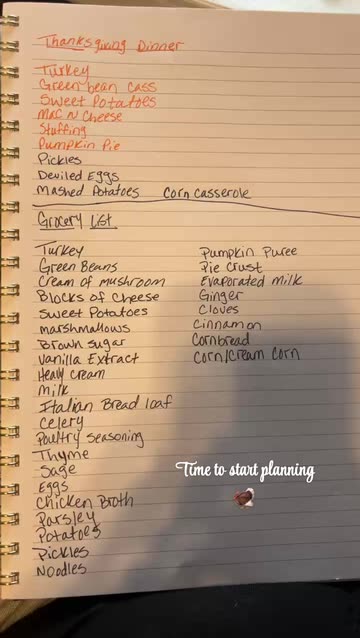 Thanksgiving Dinner
Turkey
Green bean Cass
Sweet Potatoes
Mac N Cheese
Stuffing
Pumpkin Pie
Pickles
Deviled Eggs
Mashed Potatoes Corn Casserole
Grocery List
Turkey
Green Beans
Cream of mushroom
Blocks of Cheese
Sweet Potatoes
marshmallows
Brown sugar
Vanilla Extract
Heavy cream
milk
Italian Bread loaf
Celery
Poultry Seasoning
Thyme
Sage
Eggs
Chicken Broth
Parsley
Potatoes
Pickles
Noodles
Pumpkin Puree
Pie Crust
Evaporated Milk
Ginger
Cloves
Cinnamon
Cornbread
Corn/Cream Corn
Time to start planning